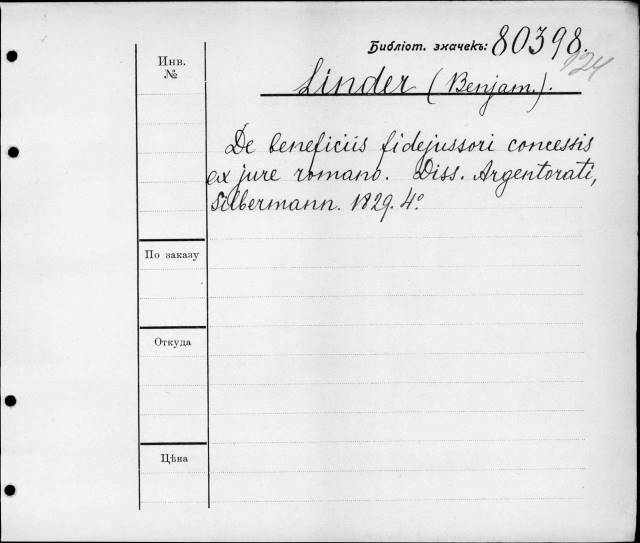 Библіот. значекъ: 80398.
124
Инв.
№
Linder (Benjam.).
De beneficiis fidejussori concessis
ex jure romano. Diss. Argentorati,
Silbermann. 1829. 4°
По заказу
Откуда
Цѣна